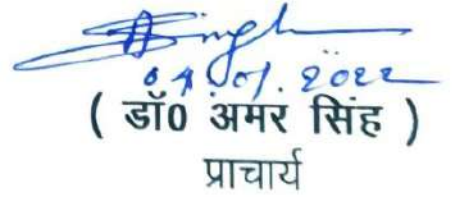 Singh
04.01.2022
( डॉ0 अमर सिंह )
प्राचार्य